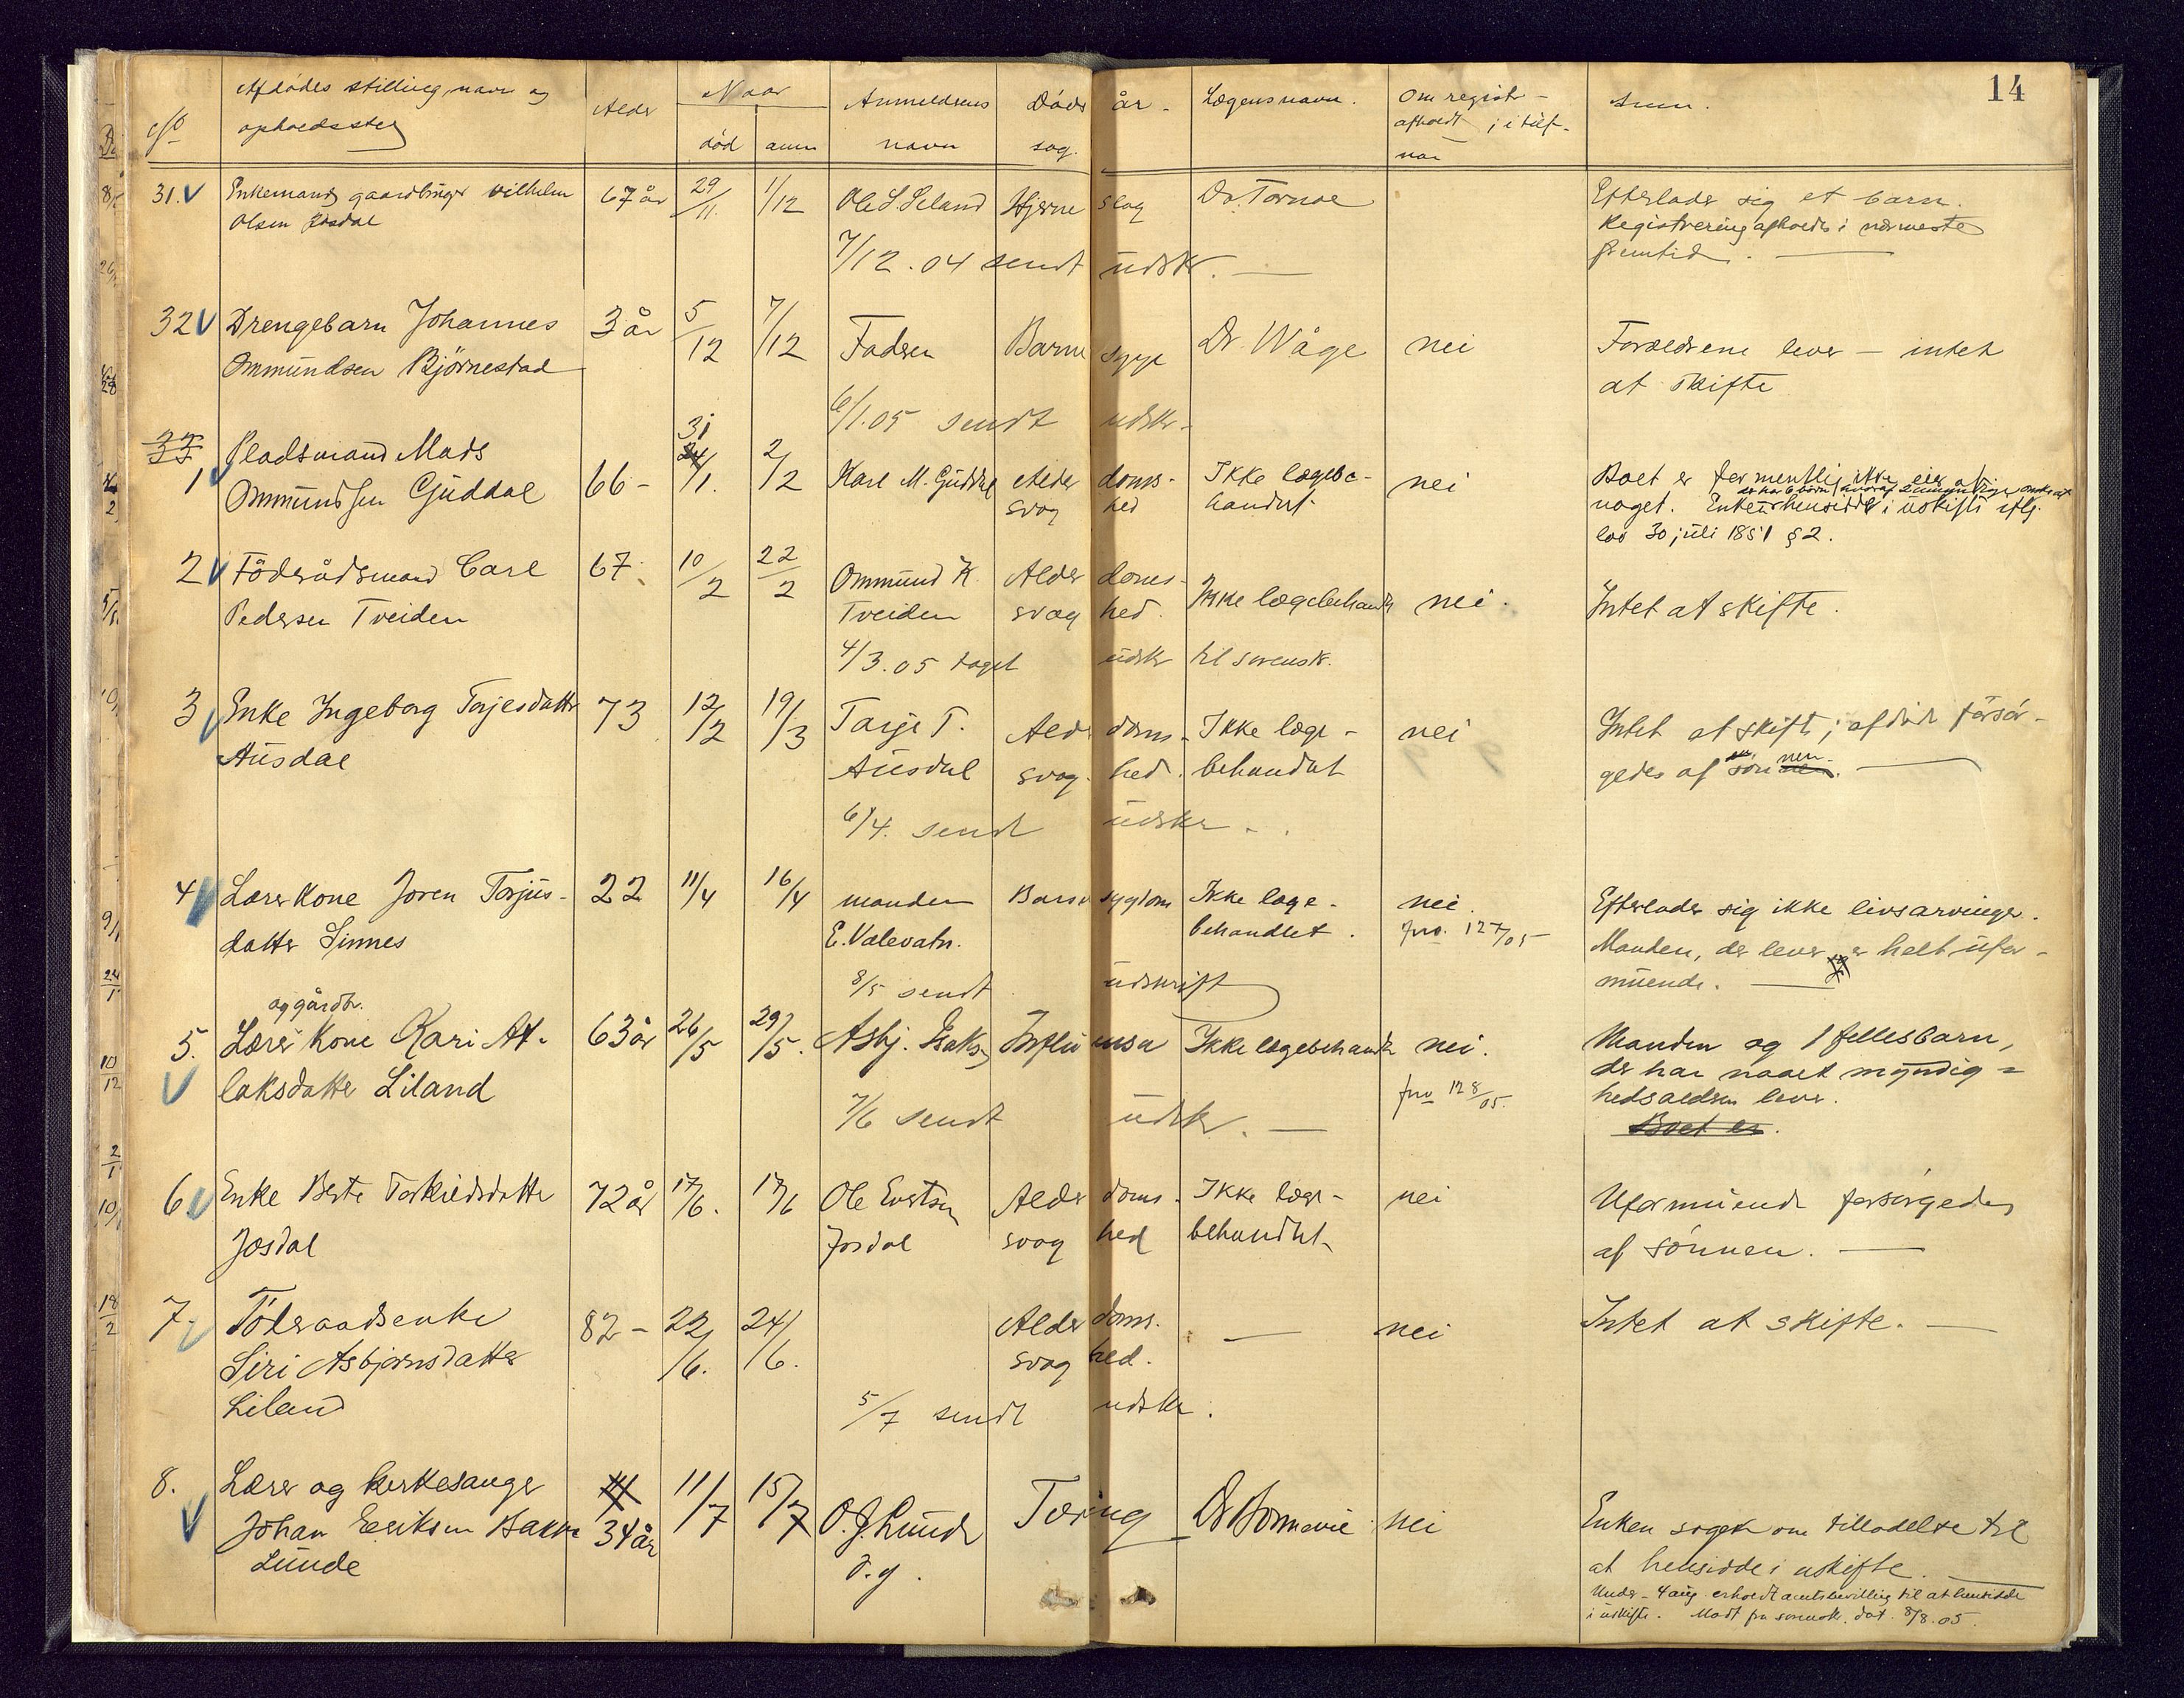 14
Afdødes stilling, navn og opholdssted
Alder
Naar
død
anm
Anmelderens navn
Dødsårsag.
Lægens navn.
Om registr- afholdt i tilf- naar
Anm.
31. Enkemand, gaardbruger Vilhelm 67 år 29/11. 1/12 Ole S. Liland Hjerneslag Dr. Tornoe Efterlader sig et barn.
Olsen Josdal Registrering afholdes i nærmeste
7/12.04 sendt udskr. fremtid.
32 Drengebarn Johannes 3 år 5/12 7/12 Faderen Barnesyge Dr Wåge nei Forældrene lever — intet
Ommundsen Bjørnestad at skifte
6/1.05 sendt udskr.
33
Pladsmand Mads 31
1 Ommundsen Guddal 66 - 24/1. 2/2 Karl M. Guddal Alderdoms- Ikke lægebe- nei Boet er formentlig ikke eier af
svaghed handlet noget. Enken hensidder i uskifte iflg.
lov 30 juli 1851 § 2.
2 Föderådsmand Carl 67 10/2 22/2 Ommund K. Alderdoms- Ikke lægebehandl nei. Intet at skifte.
Pedersen Tveiden Tveiden svaghed.
4/3.05 taget udskr til sorensk.
3 Enke Ingeborg Torjesdatter 73 12/2 19/3 Tarje T. Alderdoms- Ikke læge- nei Intet at skifte; afdøde forsør-
Ausdal Ausdal svaghed. behandlet gedes af sønnen.
6/4. sendt udskr.
4 Lærerkone Joren Torjus- 22 11/4 16/4 manden Barselsygdom Ikke læge- nei. Efterlader sig ikke livsarvinger.
datter Sinnes E. Valevatn. behandlet. jno. 127/05 Manden, der lever er helt ufor-
8/5 sendt udskrift muende.
og gårdbr.
5. Lærer Kone Kari As- 63 år 26/5 29/5. Asbj. Isaks. Influensa Ikke lægebehandl nei. Manden og 1 fellesbarn,
laksdatter Liland jno 128/05. der har naaet myndig=
7/6 sendt udskr. hedsalderen lever.
Boet er.
6 Enke Berte Torkildsdatter 72 år 17/6. 17/6 Ole Evertsen Alderdoms- Ikke læge- nei Uformuende forsørgedes
Josdal Josdal svaghed behandlet af sønnen.
7 Föderaadsenke 82 - 22/6. 24/6. Alderdoms- — nei Intet at skifte.
Siri Asbjørnsdatter svaghed.
Liland 5/7 sendt udskr.
8. Lærer og kirkesanger 11/7 15/7 O. J. Lunde Tæring Dr nei Enken søger om tilladelse til
Johan Eriksen Bakke 34 år at hensidde i uskifte.
Lunde Under 4 aug. erholdt amtsbevilling til at hensidde
i uskifte. Modt fra sorensk. dat. 8/8.05.